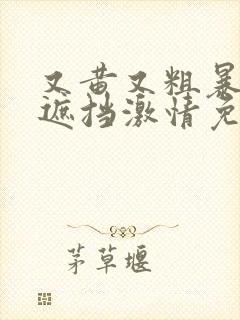 又黄又粗暴
遮挡激情免
茅草堰